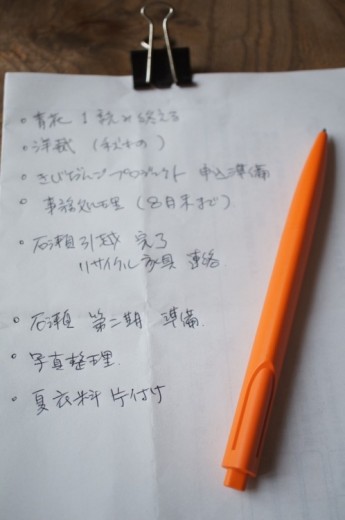 ・青花 1 読み終える
・洋裁 (
・きびだんごプロジェクト 申込準備
・事務処理 (8月末まで)
・石瀬引越 完了
リサイクル家具 連絡
・石瀬 第二期 準備
・写真整理
・夏衣料片付け